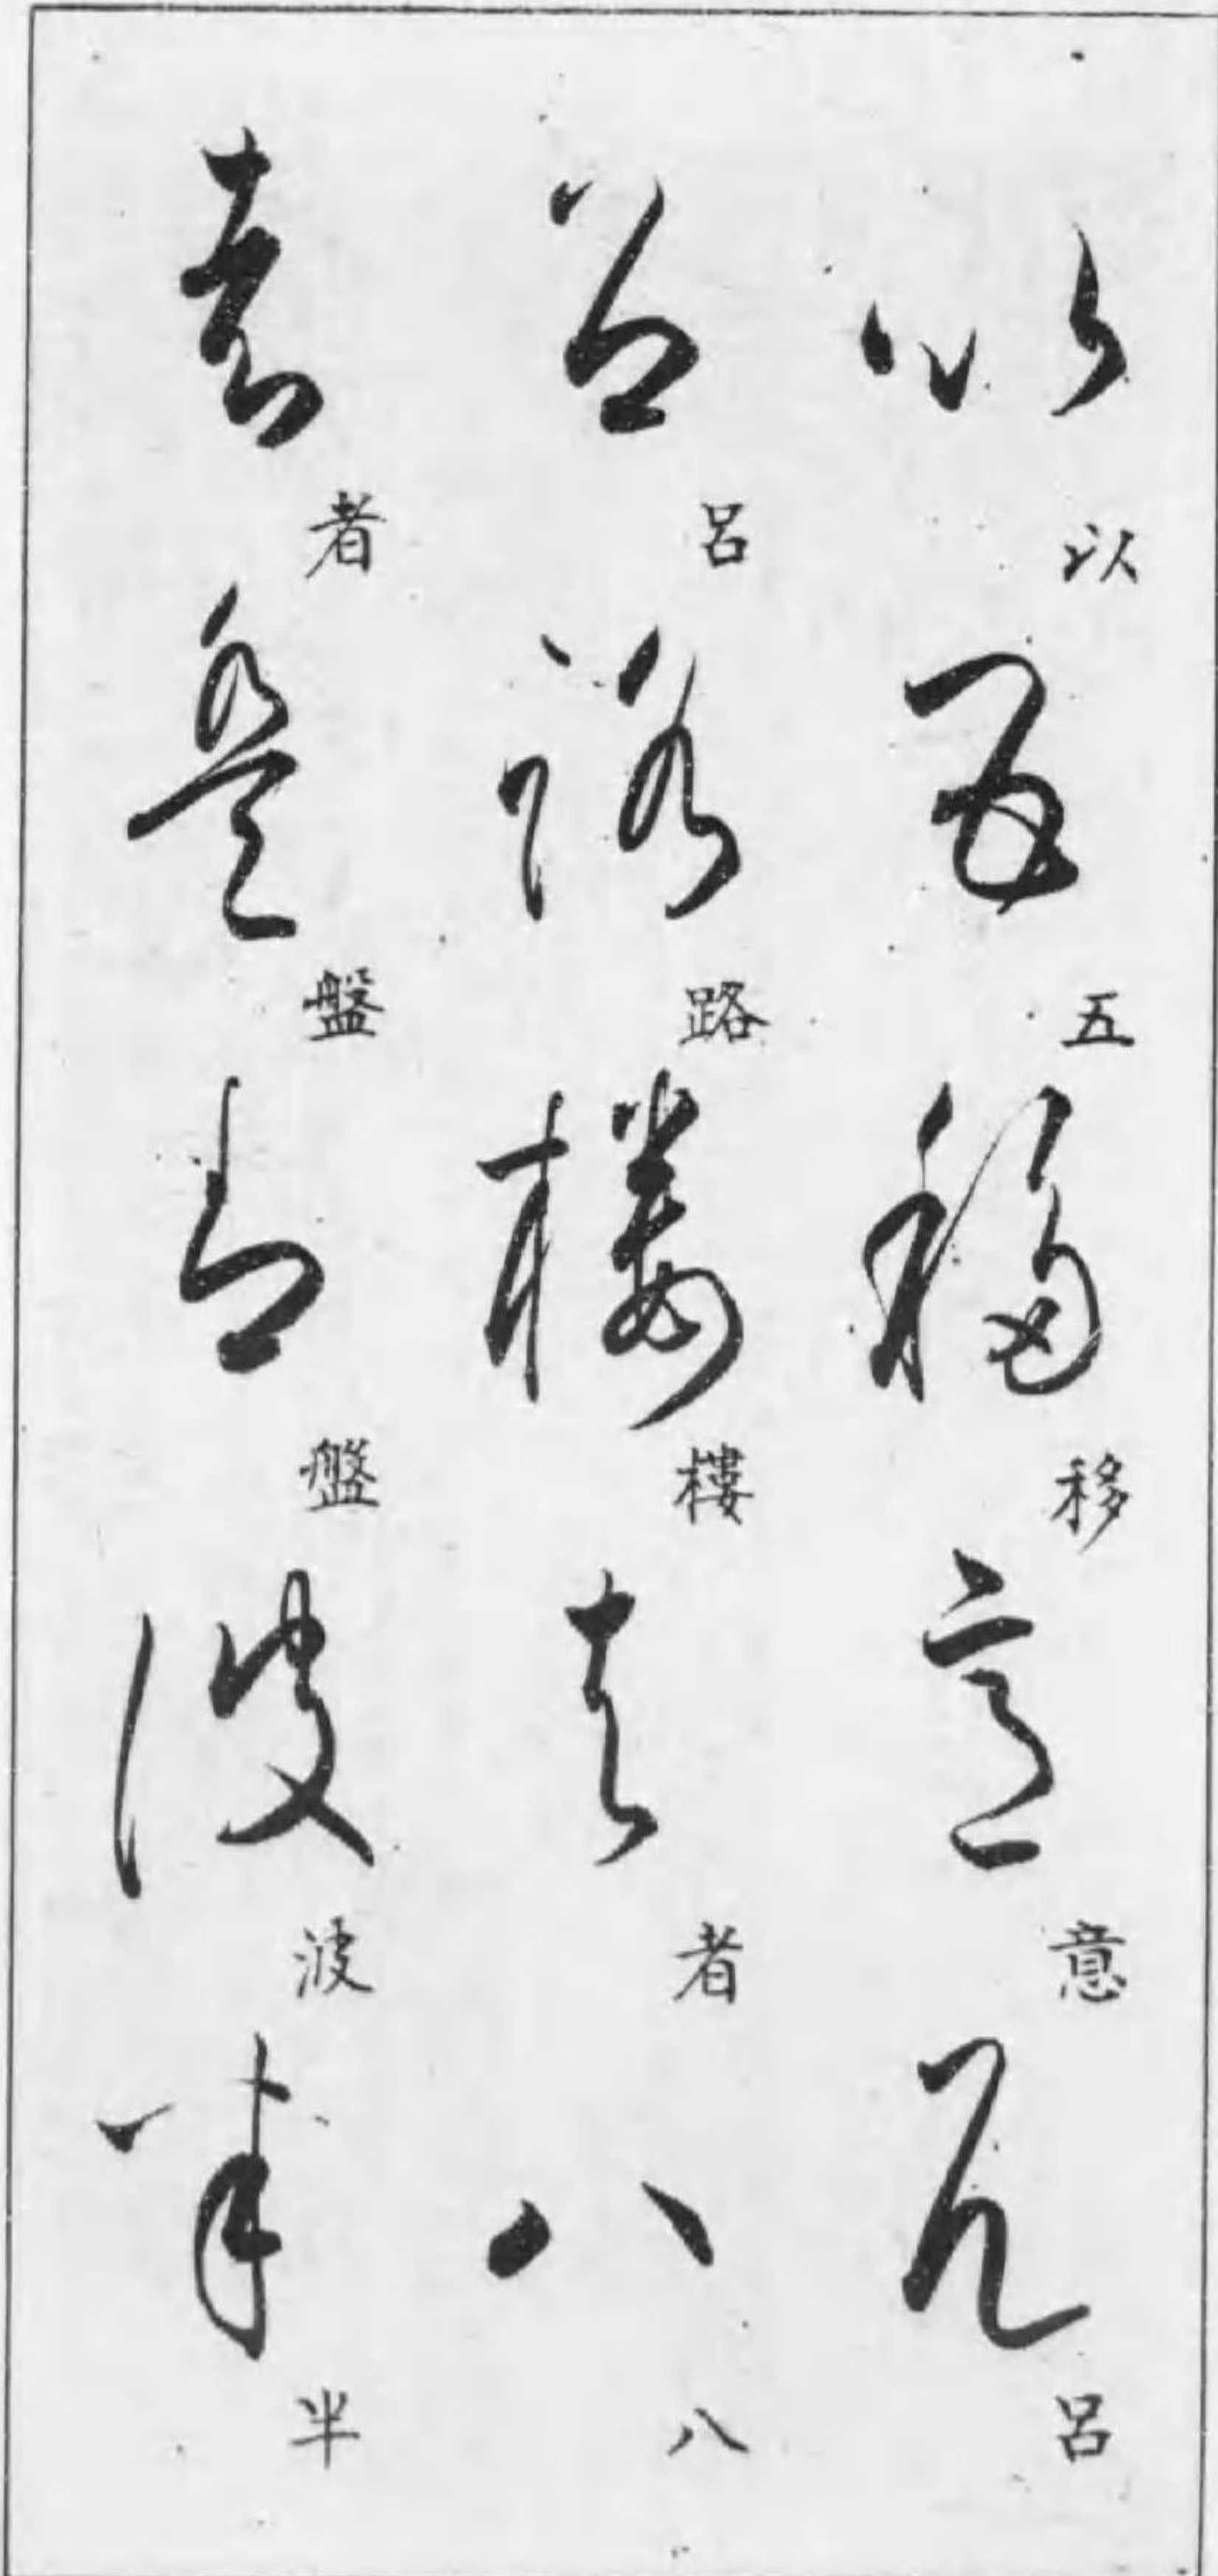 以五移意呂
呂路樓者八
者盤盤波半